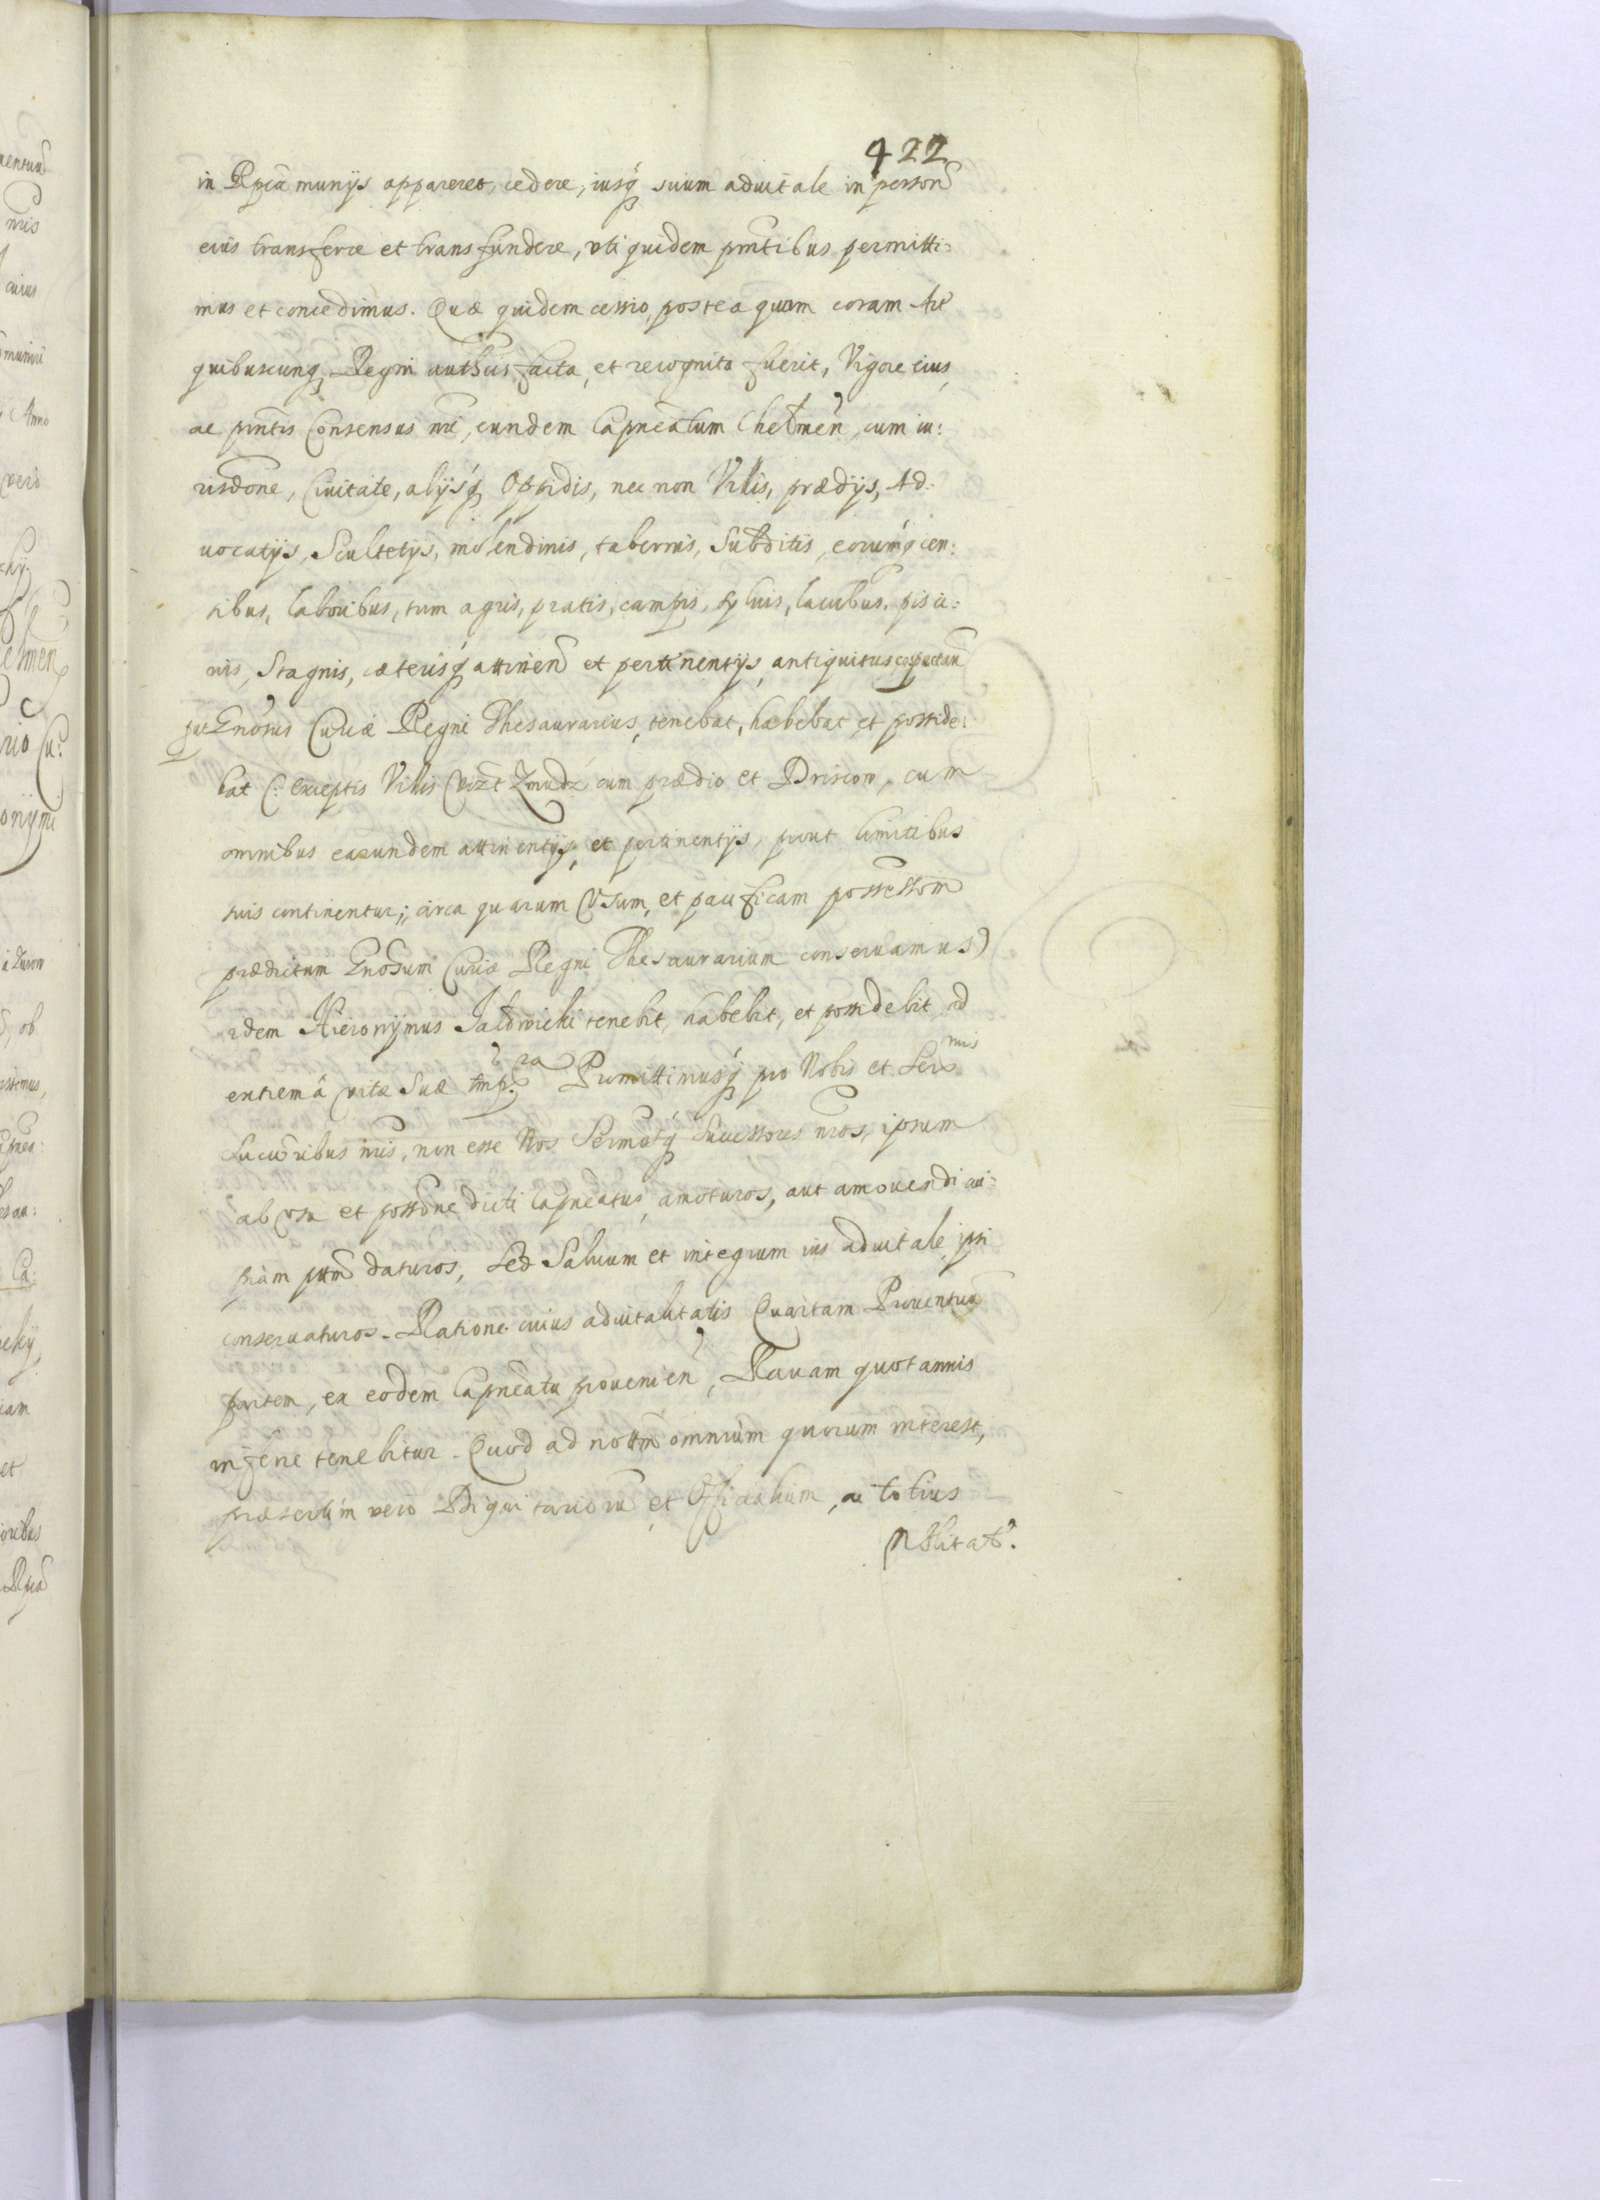 422
in Rpca munijs appareret, cedere, iusq suum aduitale in person
eius transferre et transfundere, vti quidem pntibus permitti:
mus et concedimus. Quæ quidem cessio, postea quam coram Act
quibuscunq Regni authcis facta, et recognita fuerit, Vigore eius
ac pntis Consensus nri, eundem Capneatum Chelmen, cum iu:
risdone, Ciuitate, alijsq Oppidis, nec non Villis, prædijs, Ad:
uocatijs, Scultetijs, molendinis, tabernis, Subditis, eorumq cen:
sibus, laboribus, tum agris, pratis, campis, syluis, lacubus, pisci:
nis, Stagnis, cæterisq attinen et pertinentijs, antiquitus
put Gnosus Curiæ Regni Thesaurarius, tenebat, habebat et posside:
bat (: exceptis Villis vizt Zmudz cum prædio et Driscow, cum
omnibus earundem attinentijs, et pertinentijs, prout limitibus
suis continentur; circa quarum Vsum, et pacificam possessiom
prædictum Gnosum Curiæ Regni Thesaurarium conseruamus)
idem Hieronymus Jaldwicki tenebit, habebit, et possidebit ad
extrema vitæ Suæ tmpra Promittimusq pro Nobis et Sermis
Succribus nris, non esse Nos Sermosq Successores nros, ipsum
ab vsu et possone dicti Capneatus, amoturos, aut amouendi cui:
piam pttm daturos, Sed Saluum et integrum ius aduitale ipsi
conseruaturos. Ratione cuius aduitalitatis Quartam Prouentuu
partem, ex eodem Capneatu prouenien, Rauam quotannis
inferre tenebitur. Quod ad nottm omnium quorum interest,
præsertim vero Dignitarioru et Officialium, ac totius
Nblitat.